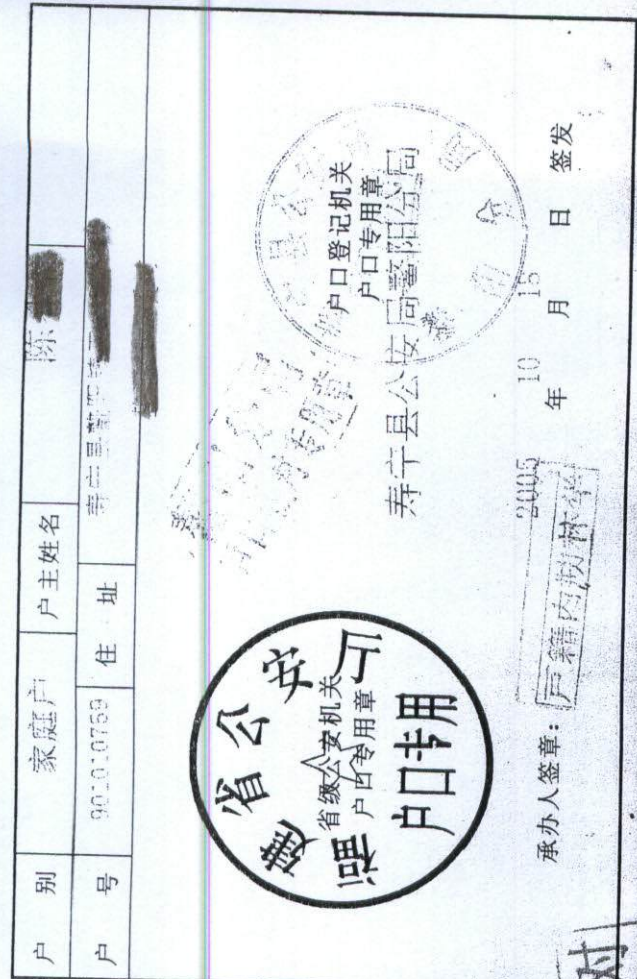 户 别 家庭户 户主姓名 陈
户 号 901010769 住 址 寿宁县鳌阳
福建省公安厅
省级公安机关
户口专用章
户口专用
户口登记机关
户口专用章
寿宁县公安局鳌阳分局
承办人签章: 户籍内勤林
2005 年 10 月 15 日 签发
对